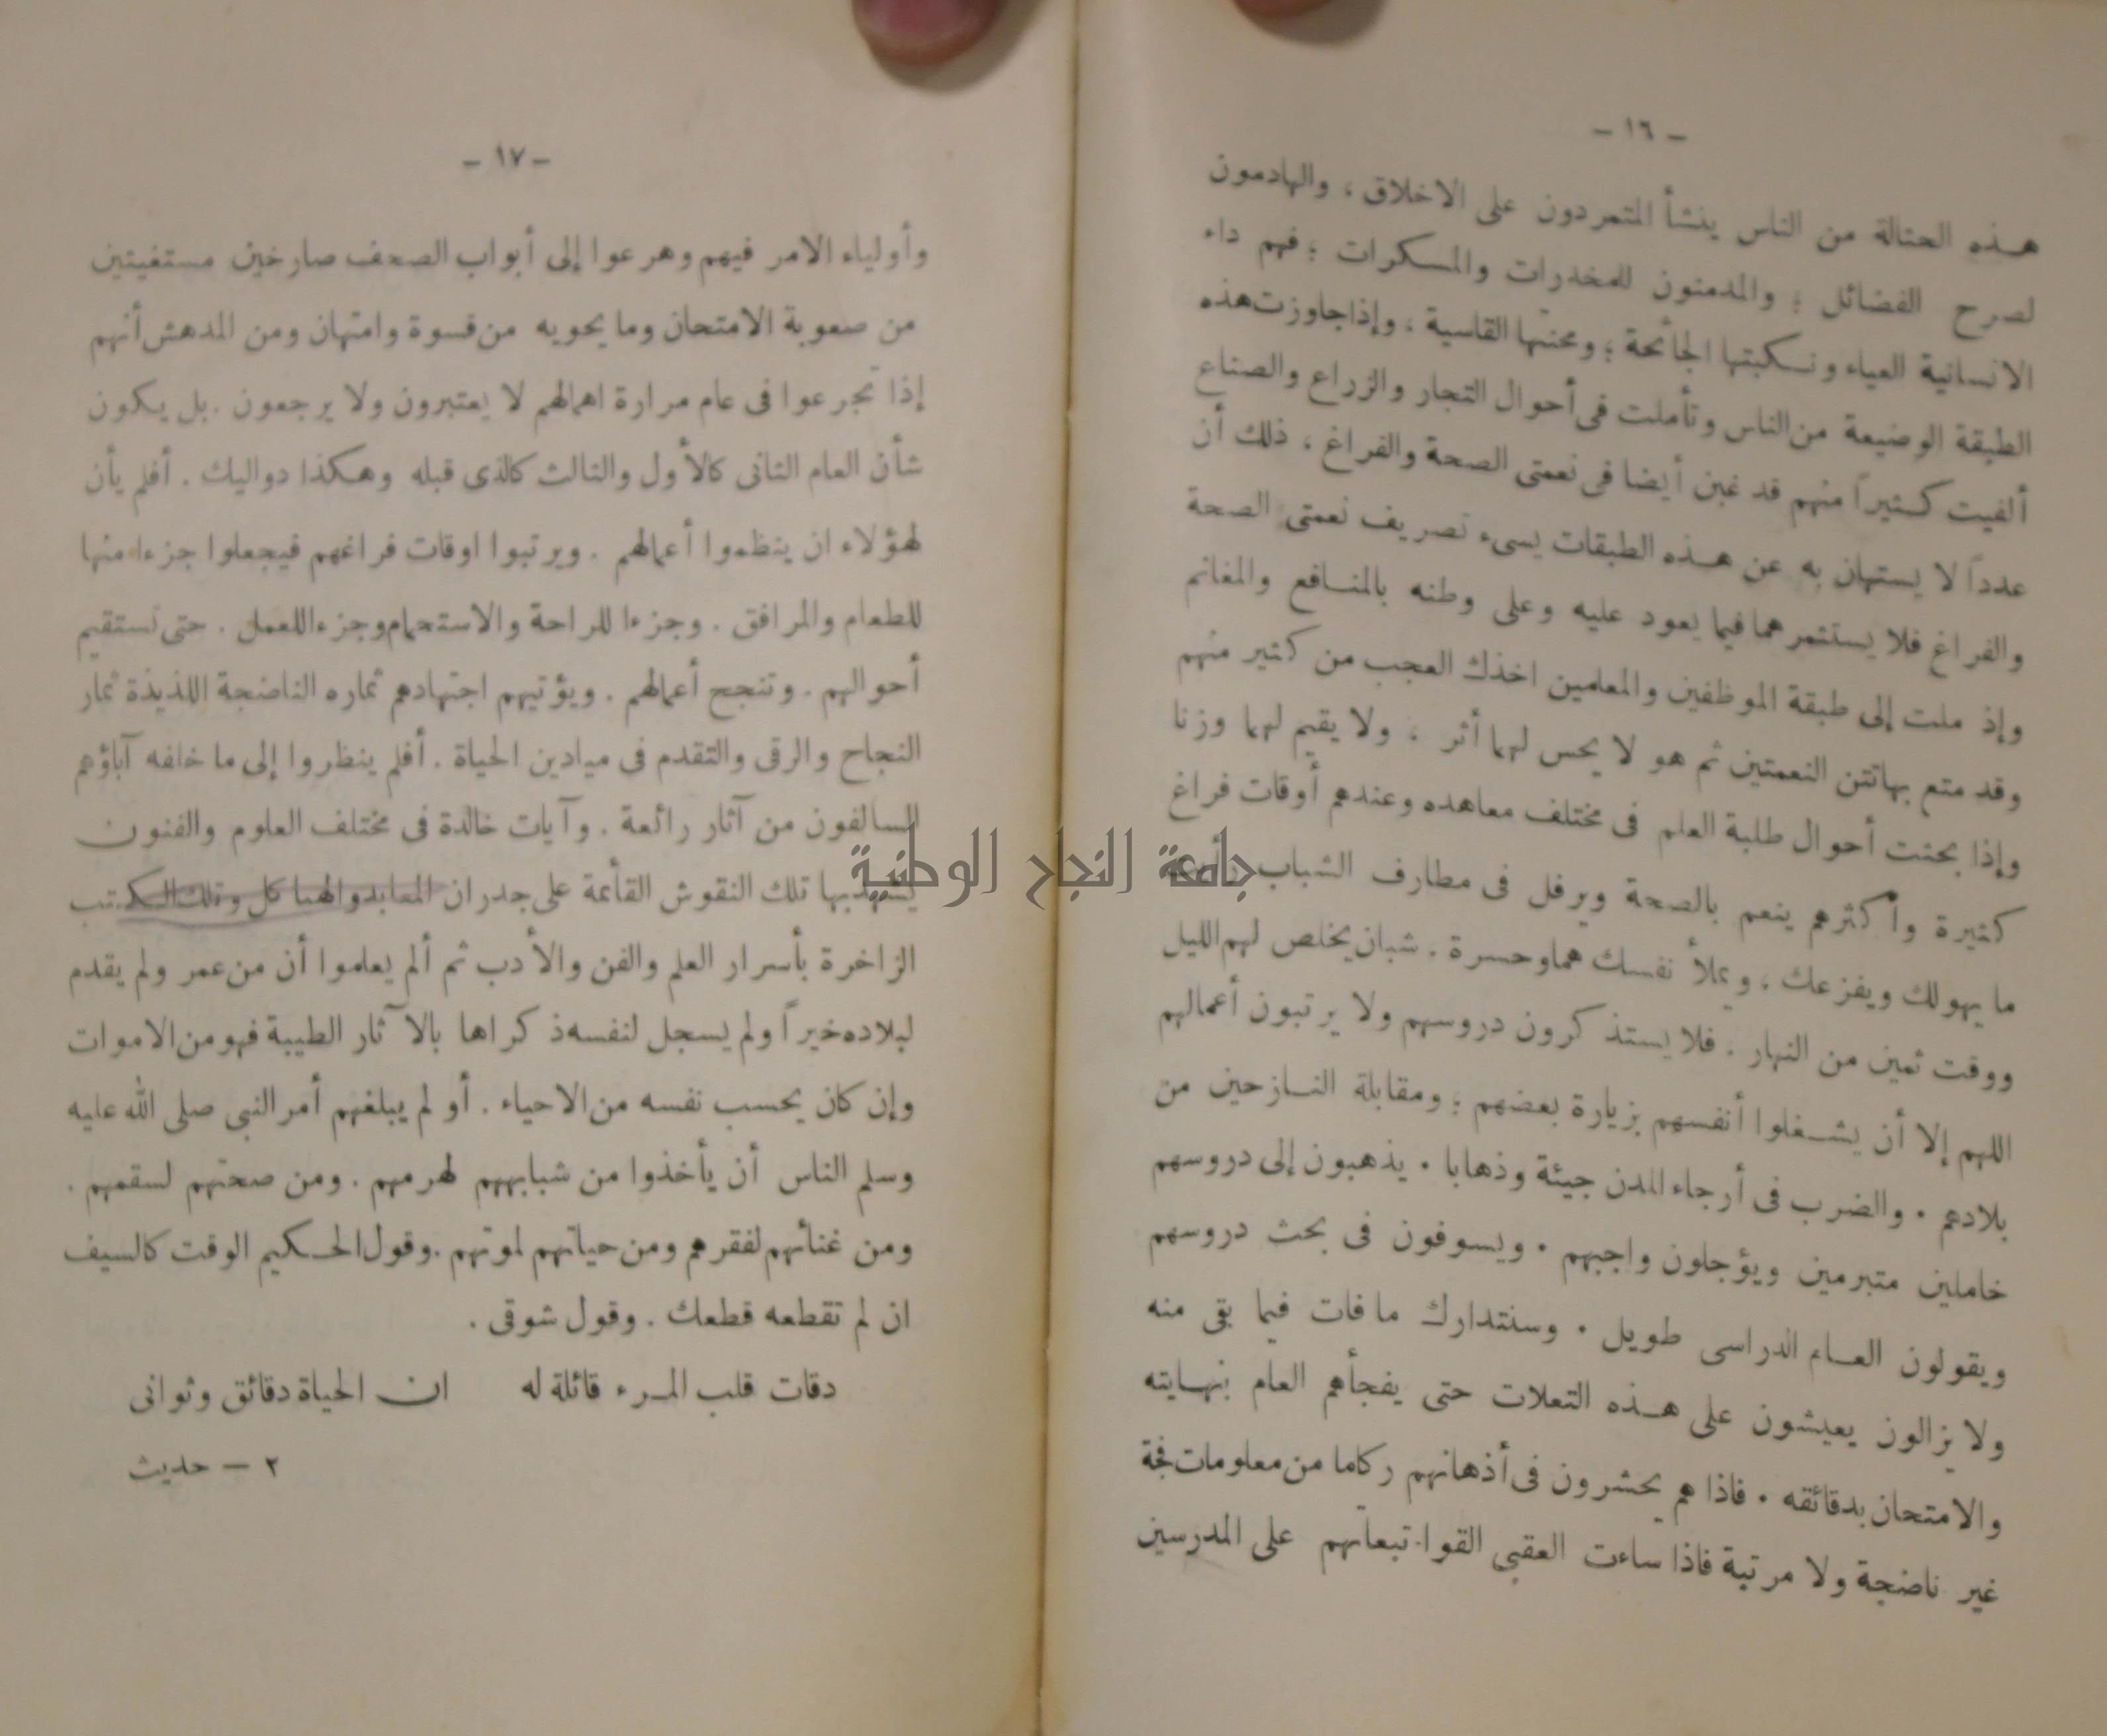 - ١٦ -
هذه الحثالة من الناس ينشأ المتمردون على الاخلاق ، والهادمون
لصرح الفضائل ؛ والمدمنون للمخدرات والمسكرات ؛ فهم داء
الانسانية العياء ونكبتها الجائحة ؛ ومحنتها القاسية ، وإذا جاوزت هذه
الطبقة الوضيعة من الناس وتأملت فى أحوال التجار والزراع والصناع
ألفيت كثيراً منهم قد غبن أيضا فى نعمتى الصحة والفراغ ، ذلك أن
عدداً لا يستهان به عن هذه الطبقات يسىء تصريف نعمتى الصحة
والفراغ فلا يستثمرهما فيما يعود عليه وعلى وطنه بالمنافع والمغانم
وإذ ملت إلى طبقة الموظفين والمعلمين اخذك العجب من كثير منهم
وقد متع بهاتتن النعمتين ثم هو لا يحس لهما أثر ، ولا يقيم لهما وزنا
وإذا بحثت أحوال طلبة العلم فى مختلف معاهده وعندهم أوقات فراغ
كثيرة وأكثرهم ينعم بالصحة ويرفل فى مطارف الشباب
ما يهولك ويفزعك ، ويملأ نفسك هما وحسرة . شبان يخلص لهم الليل
ووقت ثمين من النهار . فلا يستذكرون دروسهم ولا يرتبون أعمالهم
اللهم إلا أن يشغلوا أنفسهم بزيارة بعضهم ؛ ومقابلة النازحين من
بلادهم . والضرب فى أرجاء المدن جيئة وذهابا . يذهبون إلى دروسهم
خاملين متبرمين ويؤجلون واجبهم . ويسوفون فى بحث دروسهم
ويقولون العام الدراسى طويل . وسنتدارك ما فات فيما بقى منه
ولا يزالون يعيشون على هذه التعلات حتى يفجأهم العام بنهايته
والامتحان بدقائقه . فاذا هم يحشرون فى أذهانهم ركاما من معلومات فجة
غير ناضجة ولا مرتبة فاذا ساءت العقبى القوا تبعاتهم على المدرسين
- ١٧ -
وأولياء الامر فيهم وهرعوا إلى أبواب الصحف صارخين مستغيثين
من صعوبة الامتحان وما يحويه من قسوة وامتهان ومن المدهش أنهم
إذا تجرعوا فى عام مرارة اهمالهم لا يعتبرون ولا يرجعون . بل يكون
شأن العام الثانى كالأول والثالث كالذى قبله وهكذا دواليك . أفلم يأن
لهؤلاء ان ينظموا أعمالهم . ويرتبوا اوقات فراغهم فيجعلوا جزءا منها
للطعام والمرافق . وجزءا للراحة والاستحمام وجزءا للعمل . حتى تستقيم
أحوالهم . وتنجح أعمالهم . ويؤتيهم اجتهادهم ثماره الناضجة اللذيذة ثمار
النجاح والرقى والتقدم فى ميادين الحياة . أفلم ينظروا إلى ما خلفه آباؤهم
السالفون من آثار رائعة . وآيات خالدة فى مختلف العلوم والفنون
يشهد بها تلك النقوش القائمة على جدران المعابد والهياكل وتلك الكتب
الزاخرة بأسرار العلم والفن والأدب ثم ألم يعلموا أن من عمر ولم يقدم
لبلاده خيراً ولم يسجل لنفسه ذكراها بالآثار الطيبة فهو من الاموات
وإن كان يحسب نفسه من الاحياء . أو لم يبلغهم أمر النبى صلى الله عليه
وسلم الناس أن يأخذوا من شبابهم لهرمهم . ومن صحتهم لسقمهم .
ومن غنائهم لفقرهم ومن حياتهم لموتهم . وقول الحكيم الوقت كالسيف
ان لم تقطعه قطعك . وقول شوقى .
دقات قلب المرء قائلة له ان الحياة دقائق وثوانى
٢ - حديث
جامعة النجاح الوطنية